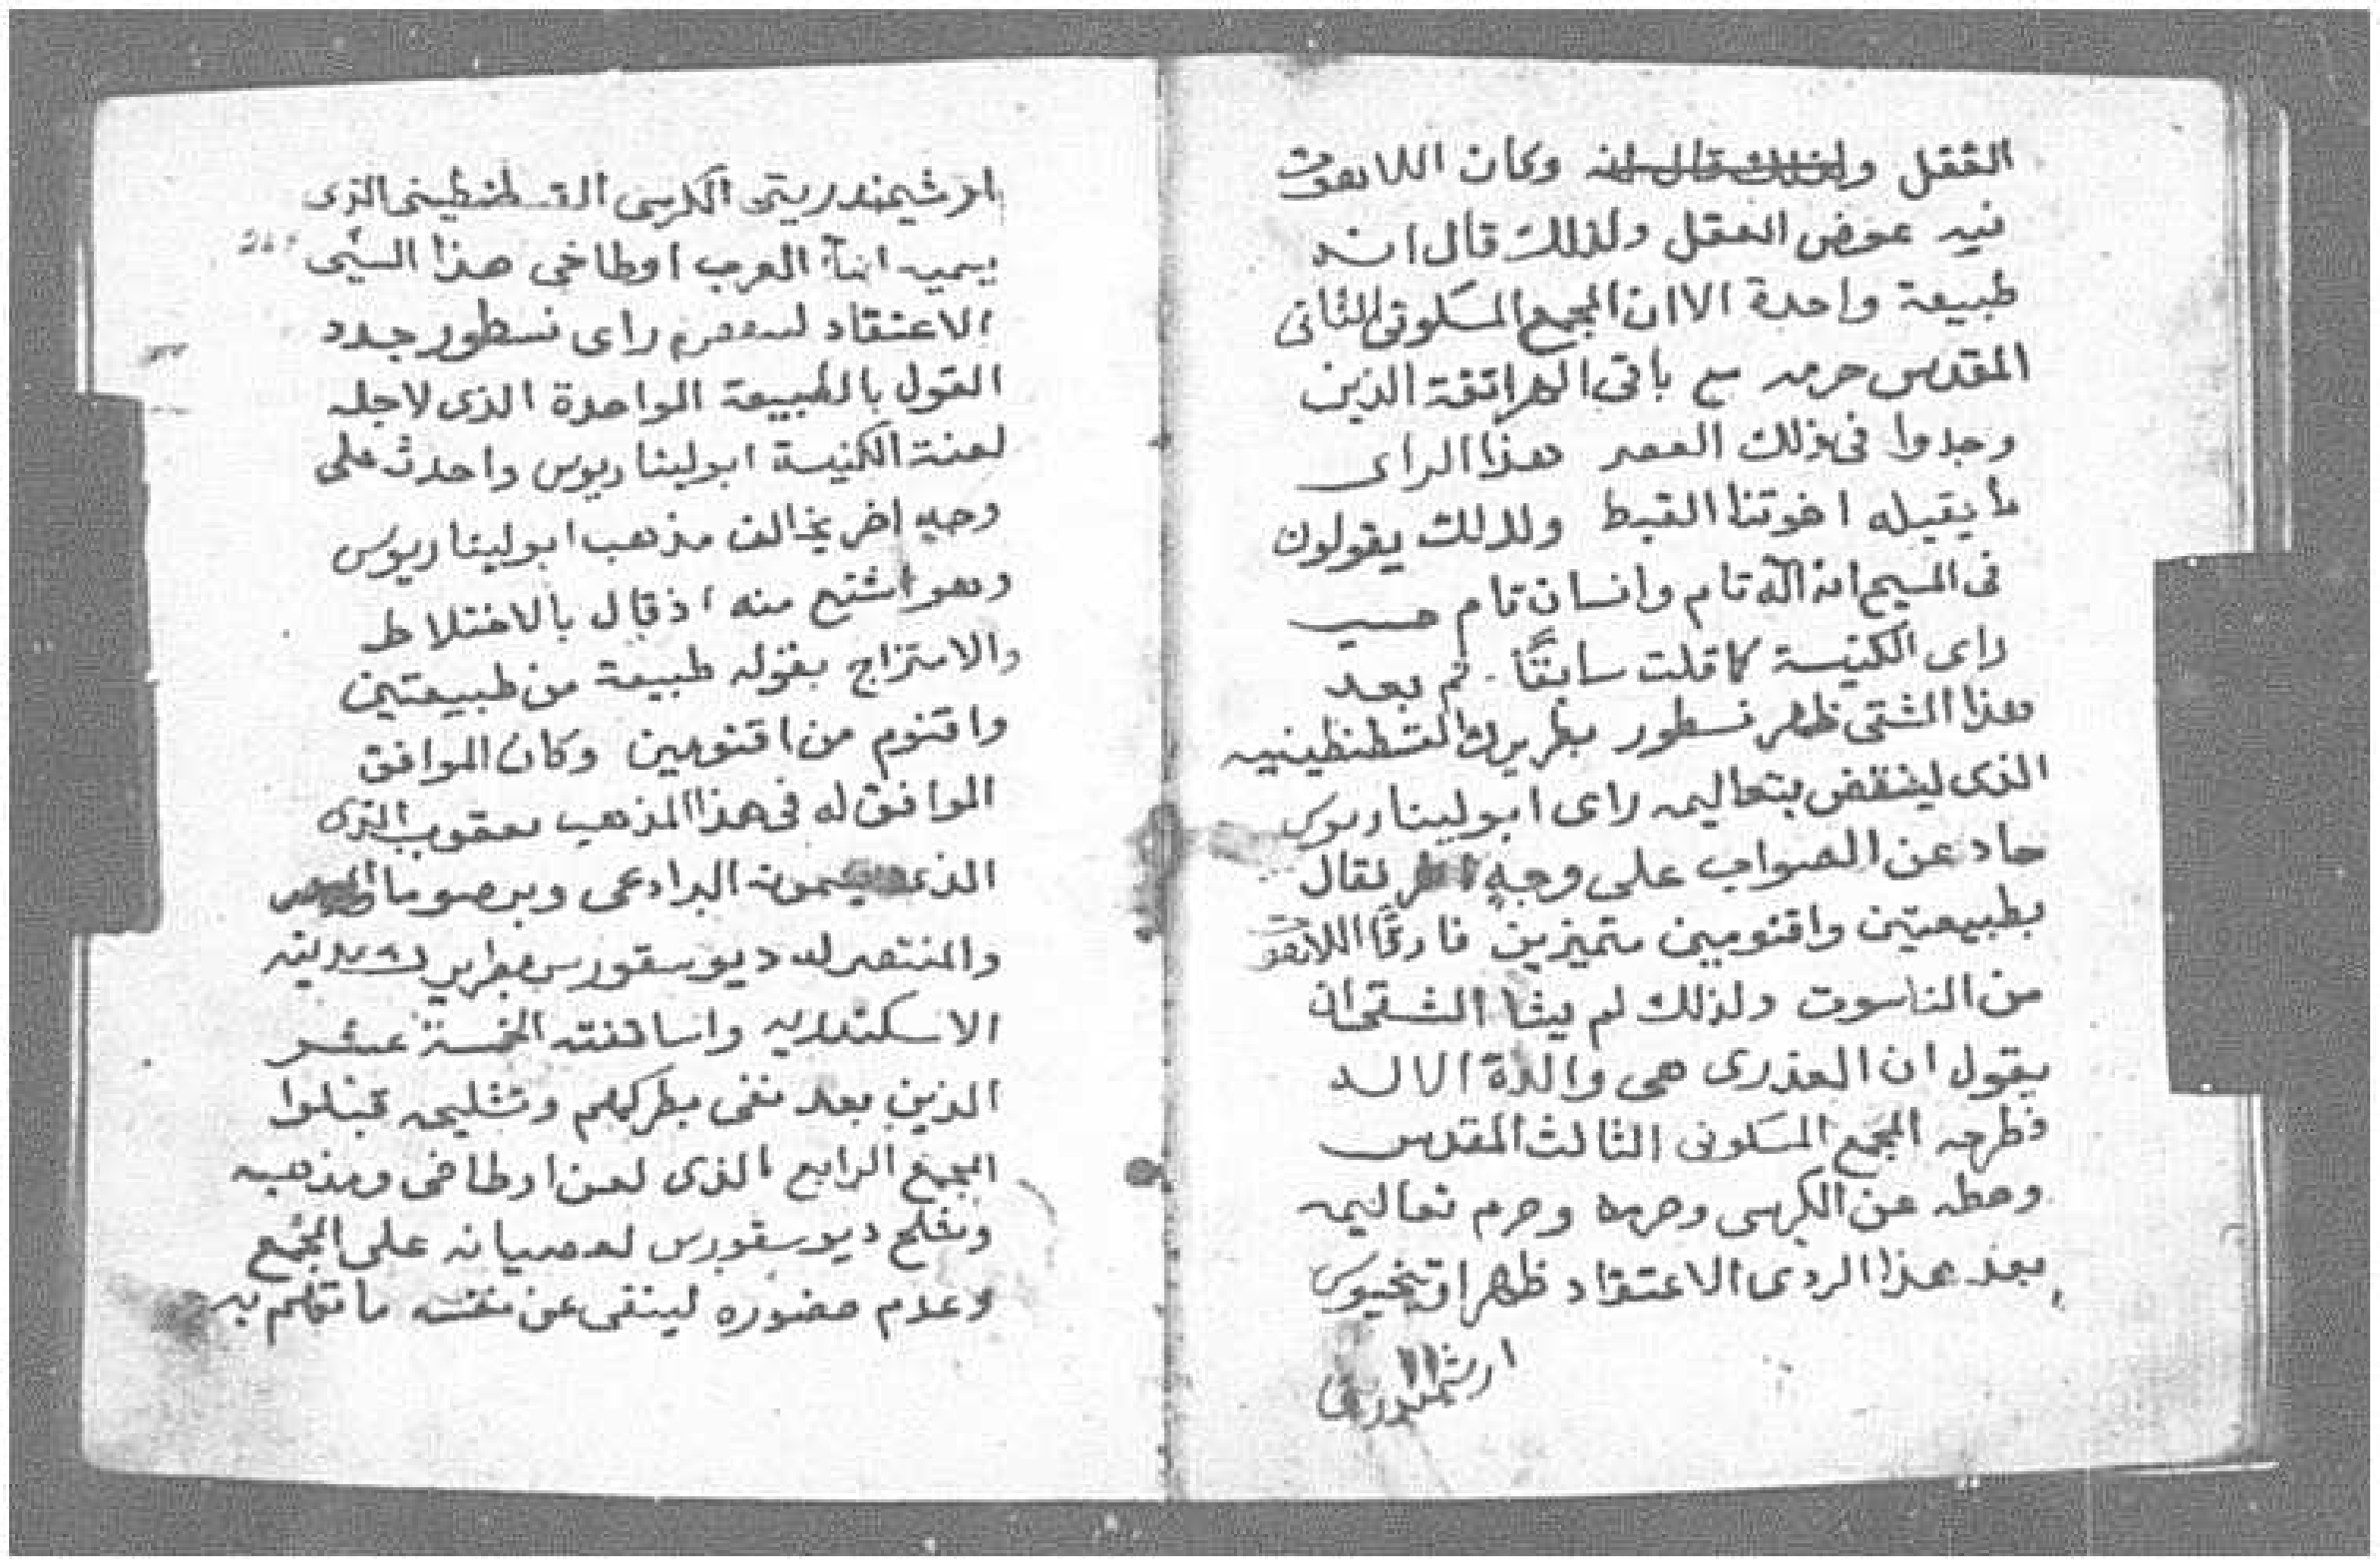 العقل ولذلك قال انه وكان اللاهوت
فيه عوض العقل ولذلك قال انه
طبيعة واحدة الا ان المجمع المسكوني الثاني
المقدس حرمه مع باقي الهراتقة الذين
وجدوا في ذلك العصر هذا الراى
ما يقبله اخوتنا القبط ولذلك يقولون
في المسيح انه اله تام وانسان تام حسب
راى الكنيسة كما قلت سابقًا . ثم بعد
هذا الشقي ظهر نسطور بطريرك القسطنطينيه
الذى لينقض بتعاليمه راى ابوليناريوس
حاد عن الصواب على وجهٍ اخر فقال
بطبيعتين واقنومين متميزين فارقًا اللاهوت
من الناسوت ولذلك لم يشا الشقي ان
يقول ان العذرى هي والدة الاله
فطرحه المجمع المسكوني الثالث المقدس
وحطه عن الكرسي وحرمه وحرم تعاليمه
بعد هذا الردى الاعتقاد ظهر اوتيخيوس
ارشمندريتي
ارشيمندريتي الكرسي القسطنطيني الذى
يسميه ابنآ العرب اوطاخي هذا السيي
الاعتقاد راى نسطور جدد
القول بالطبيعة الواحدة الذى لاجله
لعنة الكنيسة ابوليناريوس واحدث على
وجهٍ اخر يخالف مذهب ابوليناريوس
وهو اشنع منه اذ قال بالاختلاط
والامتزاج بقوله طبيعة من طبيعتين
واقنوم من اقنومين وكان الموافق
الموافق له في هذا المذهب يعقوب الذى
الذى يسمونه البرادعي وبرصوما
والمنتصر له ديوسقورس بطريرك
الاسكندريه واساقفته الخمسة عشر
الذين بعد نفي بطركهم وتثليجه قبلوا
المجمع الرابع الذى لعن اوطاخي ومذهبه
ديوسقورس لعصيانه على المجمع
وعدم حضوره لينفي عن نفسه ما تكلم به